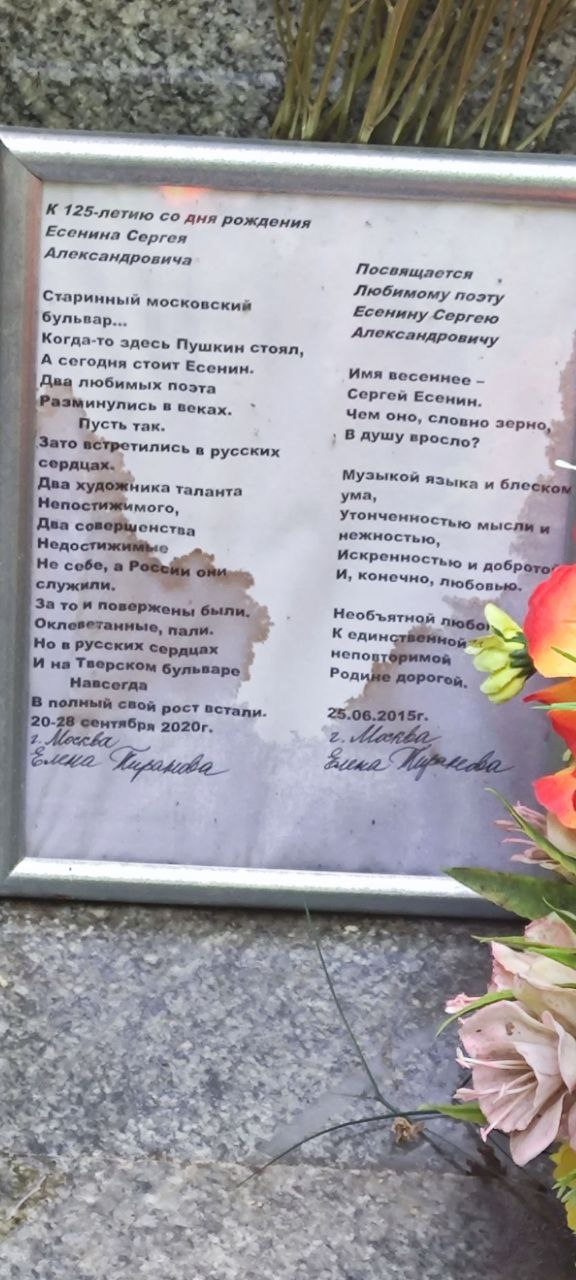 К 125-летию со дня рождения
Есенина Сергея
Александровича
Старинный московский
бульвар...
Когда-то здесь Пушкин стоял,
А сегодня стоит Есенин.
Два любимых поэта
Разминулись в веках.
Пусть так.
Зато встретились в русских
сердцах.
Два художника таланта
Непостижимого,
Два совершенства
Недостижимые
Не себе, а России они
служили.
За то и повержены были.
Оклеветанные, пали.
Но в русских сердцах
И на Тверском бульваре
Навсегда
В полный свой рост встали.
20-28 сентября 2020г.
г. Москва
Елена
Посвящается
Любимому поэту
Есенину Сергею
Александровичу
Имя весеннее –
Сергей Есенин.
Чем оно, словно зерно,
В душу вросло?
Музыкой языка и блеском
ума,
Утонченностью мысли и
нежностью,
Искренностью и
И, конечно, любовью.
Необъятной
К единственной
неповторимой
Родине дорогой.
25.06.2015г.
г. Москва
Елена